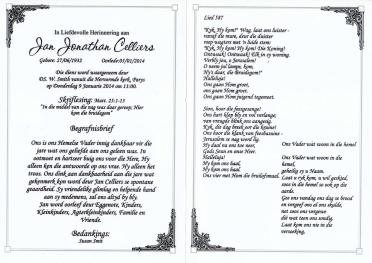 In Liefdevolle Herinnering aan
Jan Jonathan Celliers
Gebore: 27/06/1932 Oorlede: 03/01/2014
Die diens word waargeneem deur
DS. W. Smith vanuit die Hervormde kerk, Parys
op Donderdag 9 Januarie 2014 om 11:00.
Skriflesing: Matt. 25:1-13
"In die middel van die nag was daar geroep; Hier
kom die bruidegom"
Begrafnisbrief
Ons is ons Hemelse Vader innig dankbaar vir die
jare wat ons geliefde aan ons geleen was. In
ootmoet en hartseer buig ons voor die Heer. Hy
alleen ken die antwoorde op ons vrae. Hy alleen het
troos. Ons dink aan dankbaarheid aan die jare wat
gekenmerk kon word deur Jan Celliers se spontane
geaardheid. Sy vriendelike glimlag en helpende hand
aan sy medemens, sal ons altyd by bly.
Jan word oorleef deur Eggenote, Kinders,
Kleinkinders, Agterkleinkinders, Familie en
Vriende.
Bedankings:
Susan Smit
Lied 587
"Kyk, Hy kom!" Wag, laat ons luister -
vanuit die muur, deur die duister
roep wagters met 'n luide stem:
"Kyk, Hy kom! Hy kom! Die Koning!
Ontwaak! Ontwaak! Elk in sy woning.
Verbly jou, o Jerusalem!
O neem jul lampe, kom,
Hy's daar, die bruidegom!"
Halleluja!
Ons gaan Hom groet,
ons gaan Hom groet.
Ons gaan Hom juigend tegemoet.
Sion, hoor die feesgesange!
Ons hart klop bly en vol verlange;
van vreugde blink ons aangesig.
Kyk, die dag breek oor die kruine!
Ons hoor die klank van feesbasuine -
Jerusalem straal in die lig.
Hy daal na ons toe neer,
Gods Seun en onse Heer.
Halleluja!
Hy kom ons haal,
Hy kom ons haal,
Ons vier met Hom die bruilofsmaal.
Ons Vader wat woon in die hemel
Ons Vader wat woon in die
hemel,
geheilig sy u Naam.
Laat u ryk kom, u wil geskied,
soos in die hemel so ook op die
aarde.
Gee ons vandag ons daag'se brood
en vergeef ons al ons skulde,
net soos ons vergewe
dié wat teen ons sondig.
Laat kom ons nie in die
versoeking,